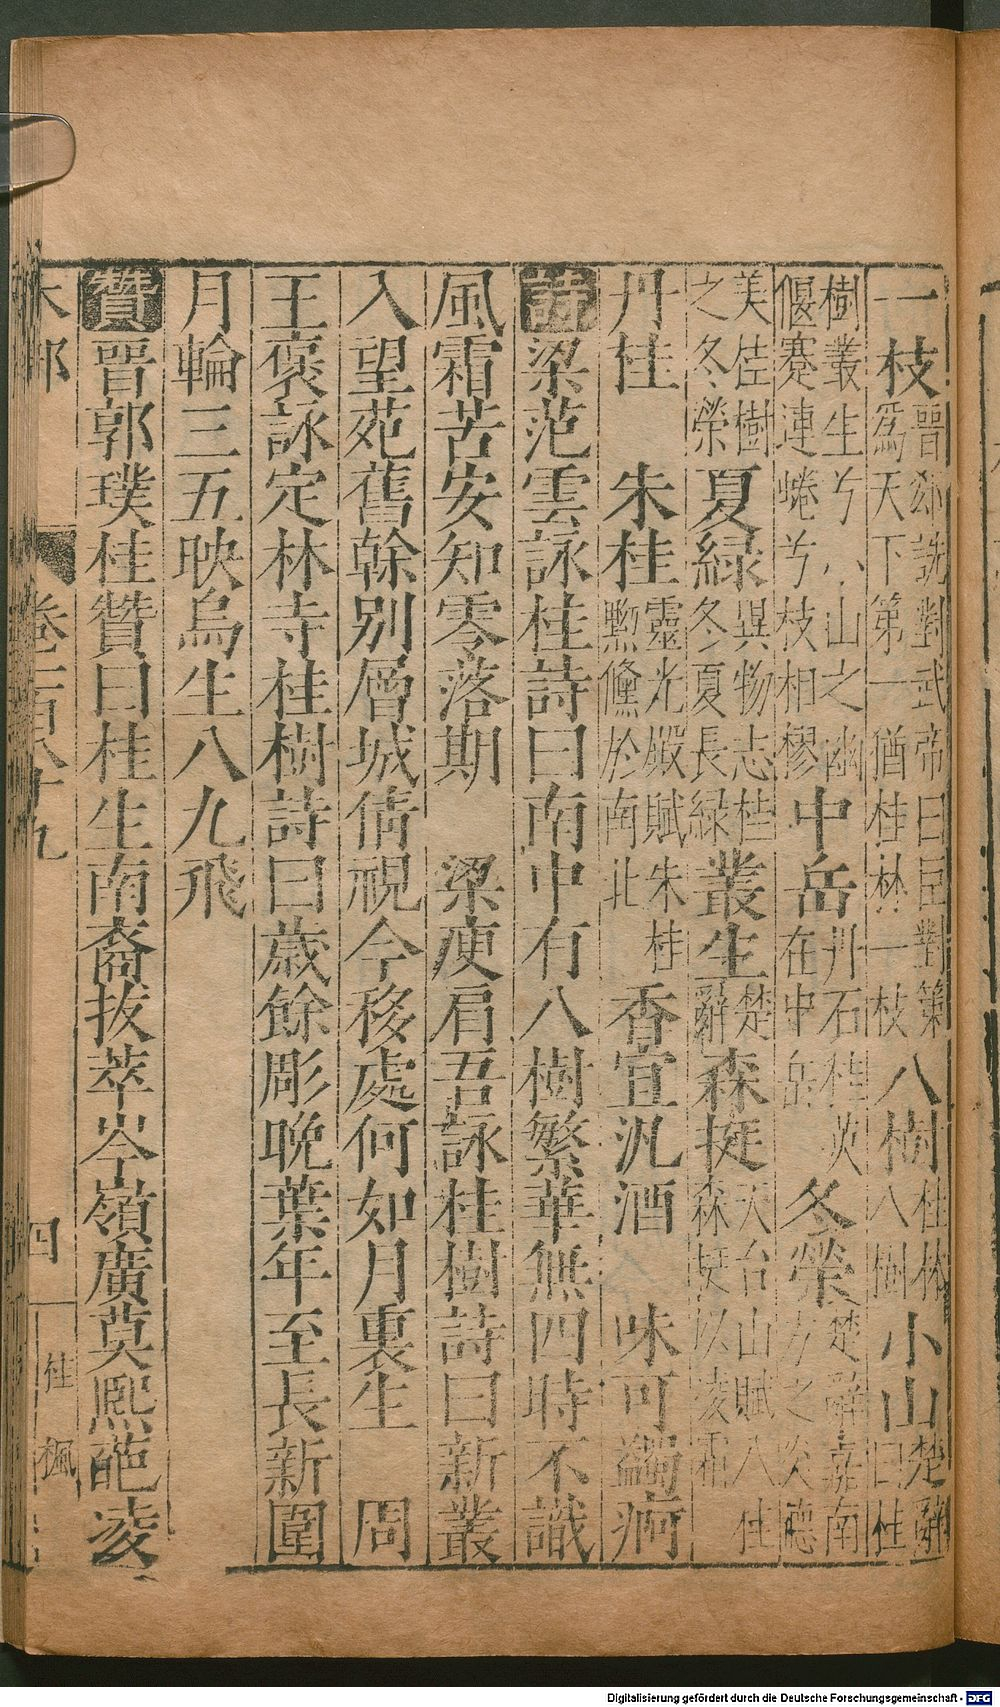 一枝晉郄詵對武帝曰臣對第爲天下第一猶桂林一枝八樹桂林八樹小山楚辭曰桂
樹叢生兮小山之幽偃蹇連蜷兮枝相樛中岳丹石桂英在中岳冬榮楚辭嘉南方之炎德
美桂樹之冬榮夏緑異物志桂冬夏長緑叢生楚辭森挺天台山賦八桂森挺以凌霜
丹桂 朱桂靈光殿賦朱桂黝儵於南北 香宜汎酒 味可蠲痾
詩梁范雲詠桂詩曰南中有八樹繁華無四時不識
風霜苦安知零落期 梁庾肩吾詠桂樹詩曰新叢
入望苑舊幹別層城倩視今移處何如月裏生 周
王褒詠定林寺桂樹詩曰歲餘彫晚葉年至長新圍
月輪三五映烏生八九飛
贊晉郭璞桂贊曰桂生南裔拔萃岑嶺廣莫熙葩凌
木部 四 桂 楓
Digitalisierung gefördert durch die Deutsche Forschungsgemeinschaft - DFG